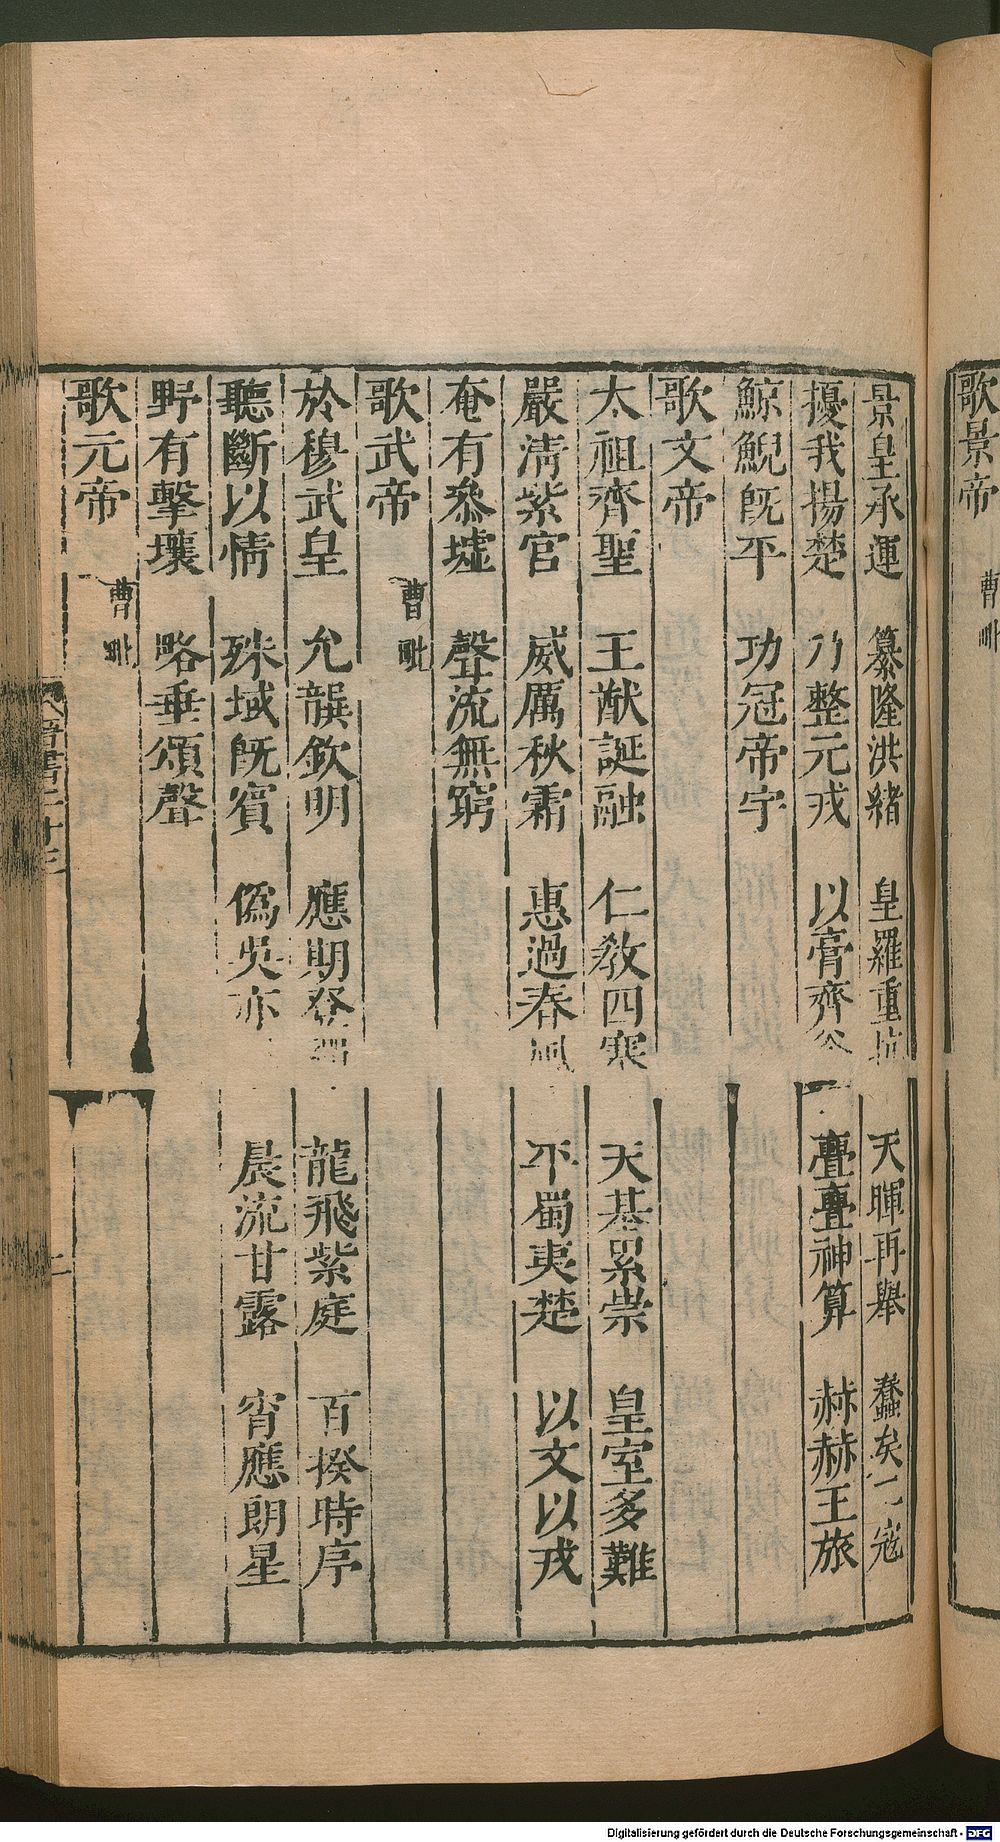 歌景帝 曹
景皇承運 纂隆洪緒 皇羅重抗 天暉再舉 蠢矣二寇
擾我揚楚 乃整元戎 以膏齊斧 亹亹神算 赫赫王旅
鯨鯢旣平 功冠帝宇
歌文帝
太祖齊聖 王猷誕融 仁敎四塞 天基累崇 皇室多難
嚴淸紫官 威厲秋霜 惠過春風 平蜀夷楚 以文以戎
奄有參墟 聲流無窮
歌武帝 曹毗
於穆武皇 允龔欽明 應期登禪 龍飛紫庭 百揆時序
聽斷以情 殊域旣賓 僞吳亦 晨流甘露 宵應朗星
野有擊壤 路垂頌聲
歌元帝 曹
晉書二十三
Digitalisierung gefördert durch die Deutsche Forschungsgemeinschaft - DFG